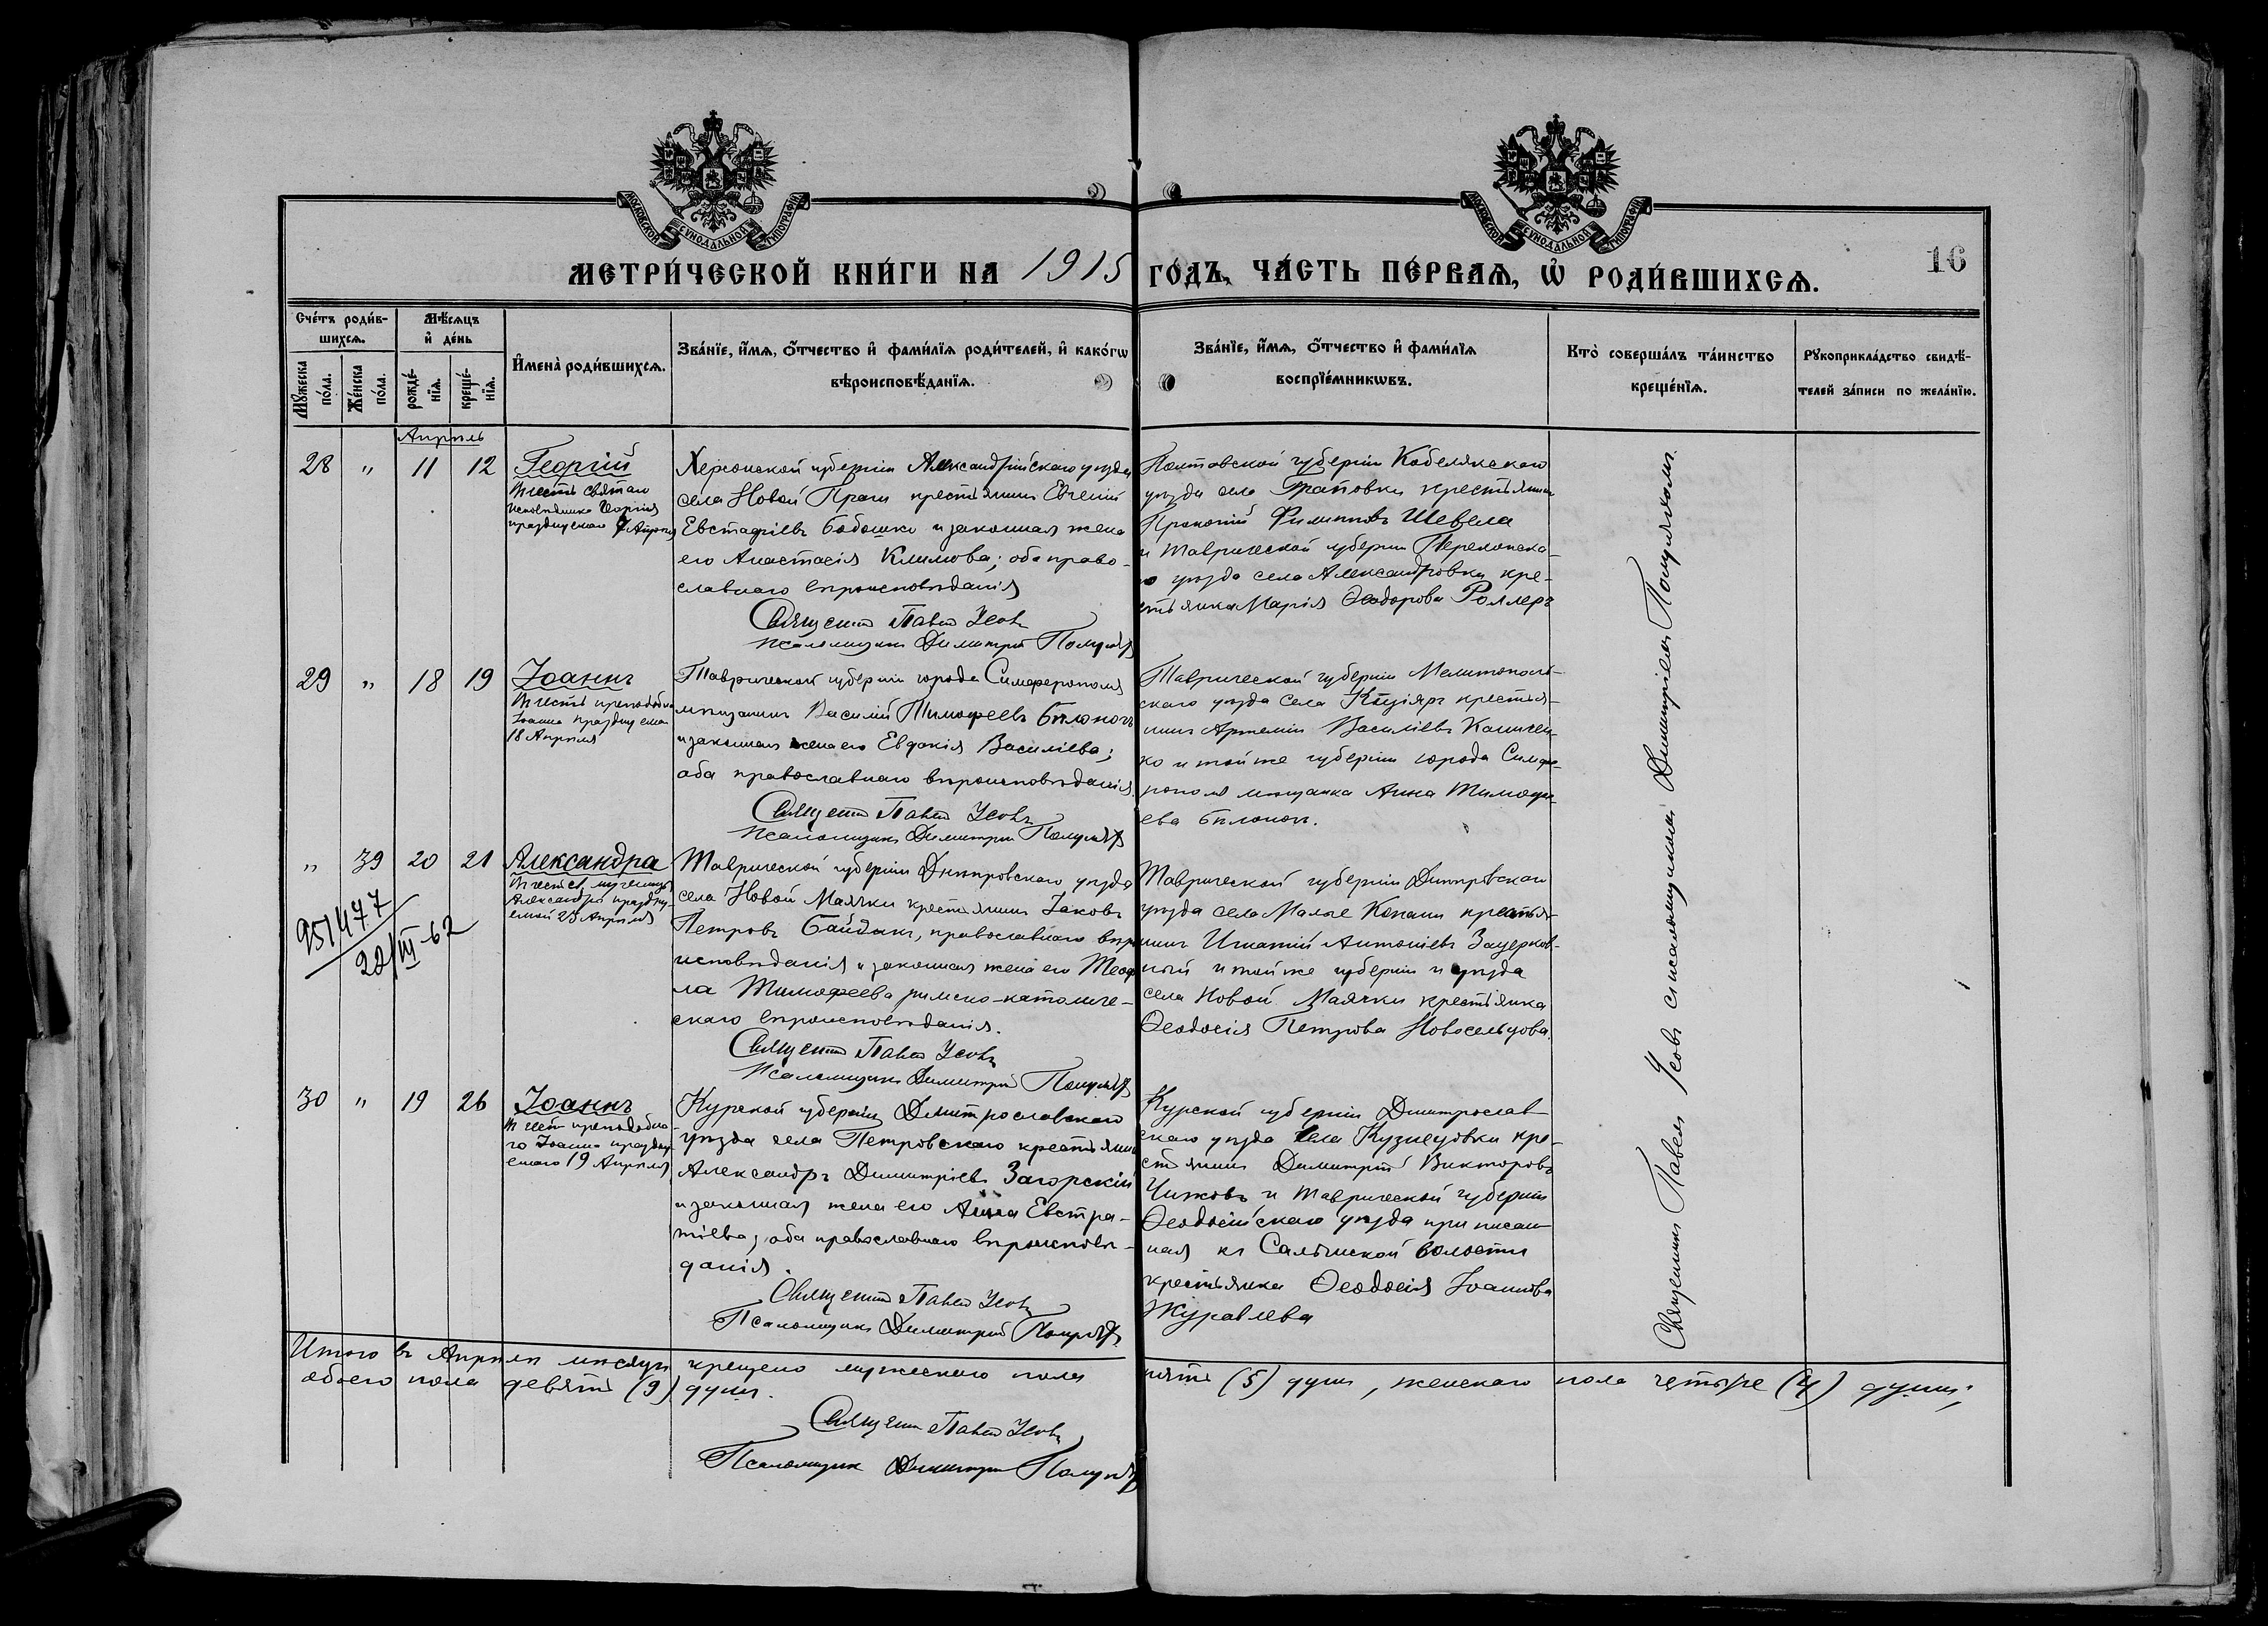 МОСКОВСКОЙ СУНОДАЛЬНОЙ ТИПОГРАФІИ
МОСКОВСКОЙ СУНОДАЛЬНОЙ ТИПОГРАФІИ
16
МЕТРИ́ЧЕСКОЙ КНИ́ГИ НА 1915 ГО́ДЪ, ЧА́СТЬ ПЕ́РВАѦ, Ѡ҆ РОДИ́ВШИХСѦ.
Сче́тъ роди́в-
шихсѧ.
Мѣ́сѧцъ
и҆ де́нь
Мꙋ́жеска по́ла.
Же́нска по́ла.
рожде́-
нїѧ.
креще́-
нїѧ.
И҆мена̀ роди́вшихсѧ.
Зва́нїе, и҆́мѧ, ѻ҆́тчество и҆ фами́лїѧ роди́телей, и҆ како́гѡ
вѣроисповѣ́данїѧ.
Зва́нїе, и҆́мѧ, ѻ҆́тчество и҆ фами́лїѧ
воспрїе́мникѡвъ.
Кто̀ соверша́лъ та́инство
креще́нїѧ.
Рꙋкоприкла́дство свидѣ́-
телей за́писи по жела́нїю.
Апрѣль
28 " 11 12 Георгій
Въ честь святаго
исповѣдника Георгія
празднуемаго 7 Апрѣля
Херсонской губерніи Александрійскаго уѣзда
села Новой Праги крестьянинъ Евгеній
Евстафіевъ Бабошко и законная жена
его Анастасія Климова; оба право-
славнаго вѣроисповѣданія
Священ. Павелъ Усовъ
Псаломщикъ Димитрій
Полтавской губерніи Кобелякскаго
уѣзда села крестьянинъ
Прокопій Филипповъ Шевела
и Таврической губерніи Перекопска-
го уѣзда села Александровки кре-
стьянка Марія Ѳеодорова Роллеръ
29 " 18 19 Іоаннъ
Въ честь преподобн.
Іоанна празднуемаго
18 Апрѣля
Таврической губерніи города Симферополя
мѣщанинъ Василій Тимофеевъ Бѣлоконь
и законная жена его Евдокія Василіева;
оба православнаго вѣроисповѣданія.
Священ. Павелъ Усовъ
Псаломщикъ Димитрій
Таврической губерніи Мелитополь-
скаго уѣзда села крестья-
нинъ Артемій Василіевъ
ко и той же губерніи города Симфе-
рополя мѣщанка Анна Тимофе-
ева Бѣлоконь.
" 39 20 21 Александра
Въ честь мученицы
Александры праздну-
емой 23 Апрѣля
951477
28/III-62
Таврической губерніи Днѣпровскаго уѣзда
села Новой Маячки крестьянинъ Іаковъ
Петровъ Байдакъ, православнаго вѣро-
исповѣданія и законная жена его Теоф-
ла Тимофеева римско-католиче-
скаго вѣроисповѣданія.
Священ. Павелъ Усовъ
Псаломщикъ Димитрій
Таврической губерніи Днѣпровскаго
уѣзда села Малые Копани крестья-
нинъ Игнатій Антоніевъ Зацерков-
ный и той же губерніи и уѣзда
села Новой Маячки крестьянка
Ѳеодосія Петрова Новосельцова.
30 " 19 26 Іоаннъ
Въ честь преподобна-
го Іоанна праздну-
емаго 19 Апрѣля
Курской губерніи Дмитрославскаго
уѣзда села Петровскаго крестьянинъ
Александръ Димитріевъ Загорскій
и законная жена его Анна Евстра-
тіева; оба православнаго вѣроисповѣ-
данія.
Священ. Павелъ Усовъ
Псаломщикъ Димитрій
Курской губерніи Дмитрослав-
скаго уѣзда села Кузнецовки кре-
стьянинъ Димитрій Викторовъ
Чижовъ и Таврической губерніи
Ѳеодосійскаго уѣзда приписан-
ная къ Салынской волости
крестьянка Ѳеодосія Іоаннова
Журавлева
Священникъ Павелъ Усовъ съ псаломщикомъ Димитріемъ
Итого въ Апрѣлѣ мѣсяцѣ крещено мужескаго пола пять (5) душъ, женскаго пола четыре (4) души;
обоего пола девять (9) душъ.
Священ. Павелъ Усовъ
Псаломщикъ Димитрій